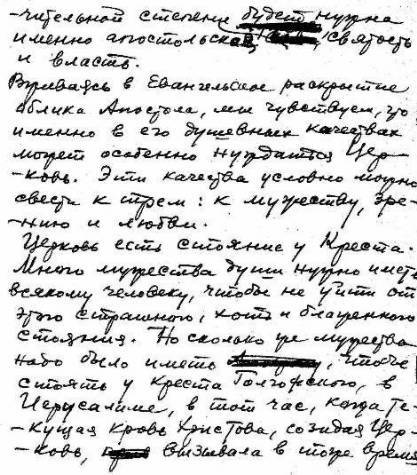 -чительной степени будет нужна
именно апостольская святость
и власть.
Вживаясь в Евангельское раскрытие
облика Апостола, мы чувствуем, что
именно в его душевных качествах
может особенно нуждаться Цер-
-ковь. Эти качества условно можно
свести к трем: к мужеству, зре-
-нию и любви.
Церковь есть стояние у Креста.
Много мужества души нужно иметь
всякому человеку, чтобы не уйти от
этого страшного, хоть и блаженного
стояния. Но сколько же мужества
надо было иметь, чтобы
стоять у креста Голгофского, в
Иерусалиме, в тот час, когда те-
-кущая кровь Христова, созидая Цер-
-ковь, вызывала в тоже время